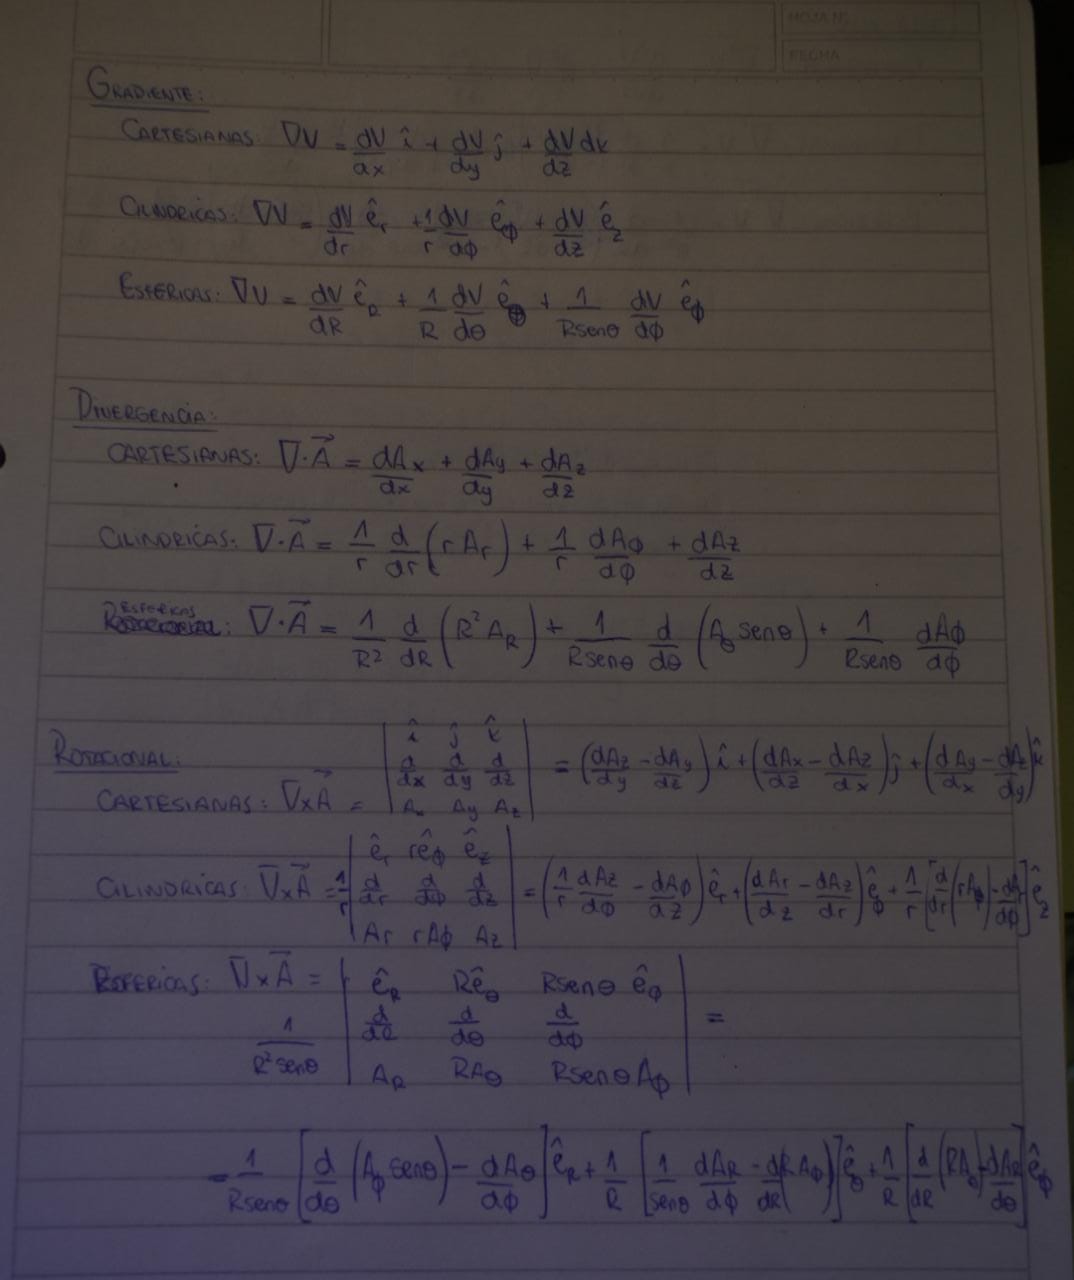 HOJA Nº
FECHA
GRADIENTE:
CARTESIANAS: ∇V = dV/dx î + dV/dy ĵ + dV/dz dk
CILINDRICAS: ∇V = dV/dr ê_r + 1/r dV/dϕ ê_ϕ + dV/dz ê_z
ESFERICAS: ∇V = dV/dR ê_R + 1/R dV/dθ ê_θ + 1/(R senθ) dV/dϕ ê_ϕ
DIVERGENCIA:
CARTESIANAS: ∇·A⃗ = dAx/dx + dAy/dy + dAz/dz
CILINDRICAS: ∇·A⃗ = 1/r d/dr (r A_r) + 1/r dAϕ/dϕ + dAz/dz
ESFERICAS: ∇·A⃗ = 1/R² d/dR (R² A_R) + 1/(R senθ) d/dθ (A_θ senθ) + 1/(R senθ) dAϕ/dϕ
ROTACIONAL:
CARTESIANAS: ∇×A⃗ = | î ĵ k̂ ; d/dx d/dy d/dz ; Ax Ay Az | = (dAz/dy − dAy/dz) î + (dAx/dz − dAz/dx) ĵ + (dAy/dx − dAx/dy) k̂
CILINDRICAS: ∇×A⃗ = 1/r | ê_r rê_ϕ ê_z ; d/dr d/dϕ d/dz ; Ar rAϕ Az | = (1/r dAz/dϕ − dAϕ/dz) ê_r + (dAr/dz − dAz/dr) ê_ϕ + 1/r [d/dr (rAϕ) − dA/dϕ] ê_z
ESFERICAS: ∇×A⃗ = 1/(R² senθ) | ê_R Rê_θ R senθ ê_ϕ ; d/dR d/dθ d/dϕ ; A_R RAθ R senθ Aϕ | =
= 1/(R senθ) [d/dθ (A_ϕ senθ) − dAθ/dϕ] ê_R + 1/R [1/senθ dAR/dϕ − d/dR (R Aϕ)] ê_θ + 1/R [d/dR (RA_θ) − dAR/dθ] ê_ϕ